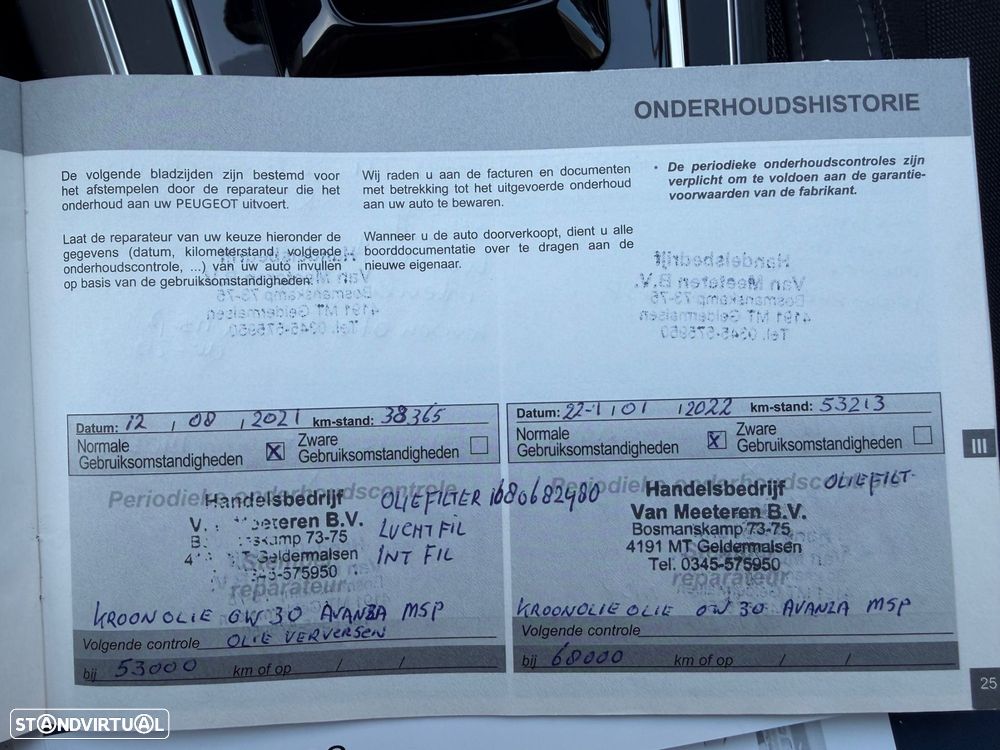 ONDERHOUDSHISTORIE
De volgende bladzijden zijn bestemd voor
het afstempelen door de reparateur die het
onderhoud aan uw PEUGEOT uitvoert.
Laat de reparateur van uw keuze hieronder de
gegevens (datum, kilometerstand, volgende
onderhoudscontrole, ...) van uw auto invullen
op basis van de gebruiksomstandigheden.
Wij raden u aan de facturen en documenten
met betrekking tot het uitgevoerde onderhoud
aan uw auto te bewaren.
Wanneer u de auto doorverkoopt, dient u alle
boorddocumentatie over te dragen aan de
nieuwe eigenaar.
• De periodieke onderhoudscontroles zijn
verplicht om te voldoen aan de garantie-
voorwaarden van de fabrikant.
Datum: 12 / 08 / 2021 km-stand: 38365
Normale
Gebruiksomstandigheden
Zware
Gebruiksomstandigheden
Periodieke onderhoudscontrole
Handelsbedrijf
V. Meeteren B.V.
73-75
MT Geldermalsen
0345-575950
reparateur
OLIEFILTER 1680682980
LUCHT FIL
INT FIL
KROON OLIE 0W30 AVANZA MSP
Volgende controle OLIE VERVERSEN
bij 53000 km of op / /
Datum: 22-1 / 01 / 2022 km-stand: 53213
Normale
Gebruiksomstandigheden
Zware
Gebruiksomstandigheden
Periodieke onderhoudscontrole
Handelsbedrijf
Van Meeteren B.V.
Bosmanskamp 73-75
4191 MT Geldermalsen
Tel. 0345-575950
reparateur
OLIEFILT.
KROONOLIE OLIE 0W30 AVANZA MSP
Volgende controle
bij 68000 km of op / /
III
25
STANDVIRTUAL